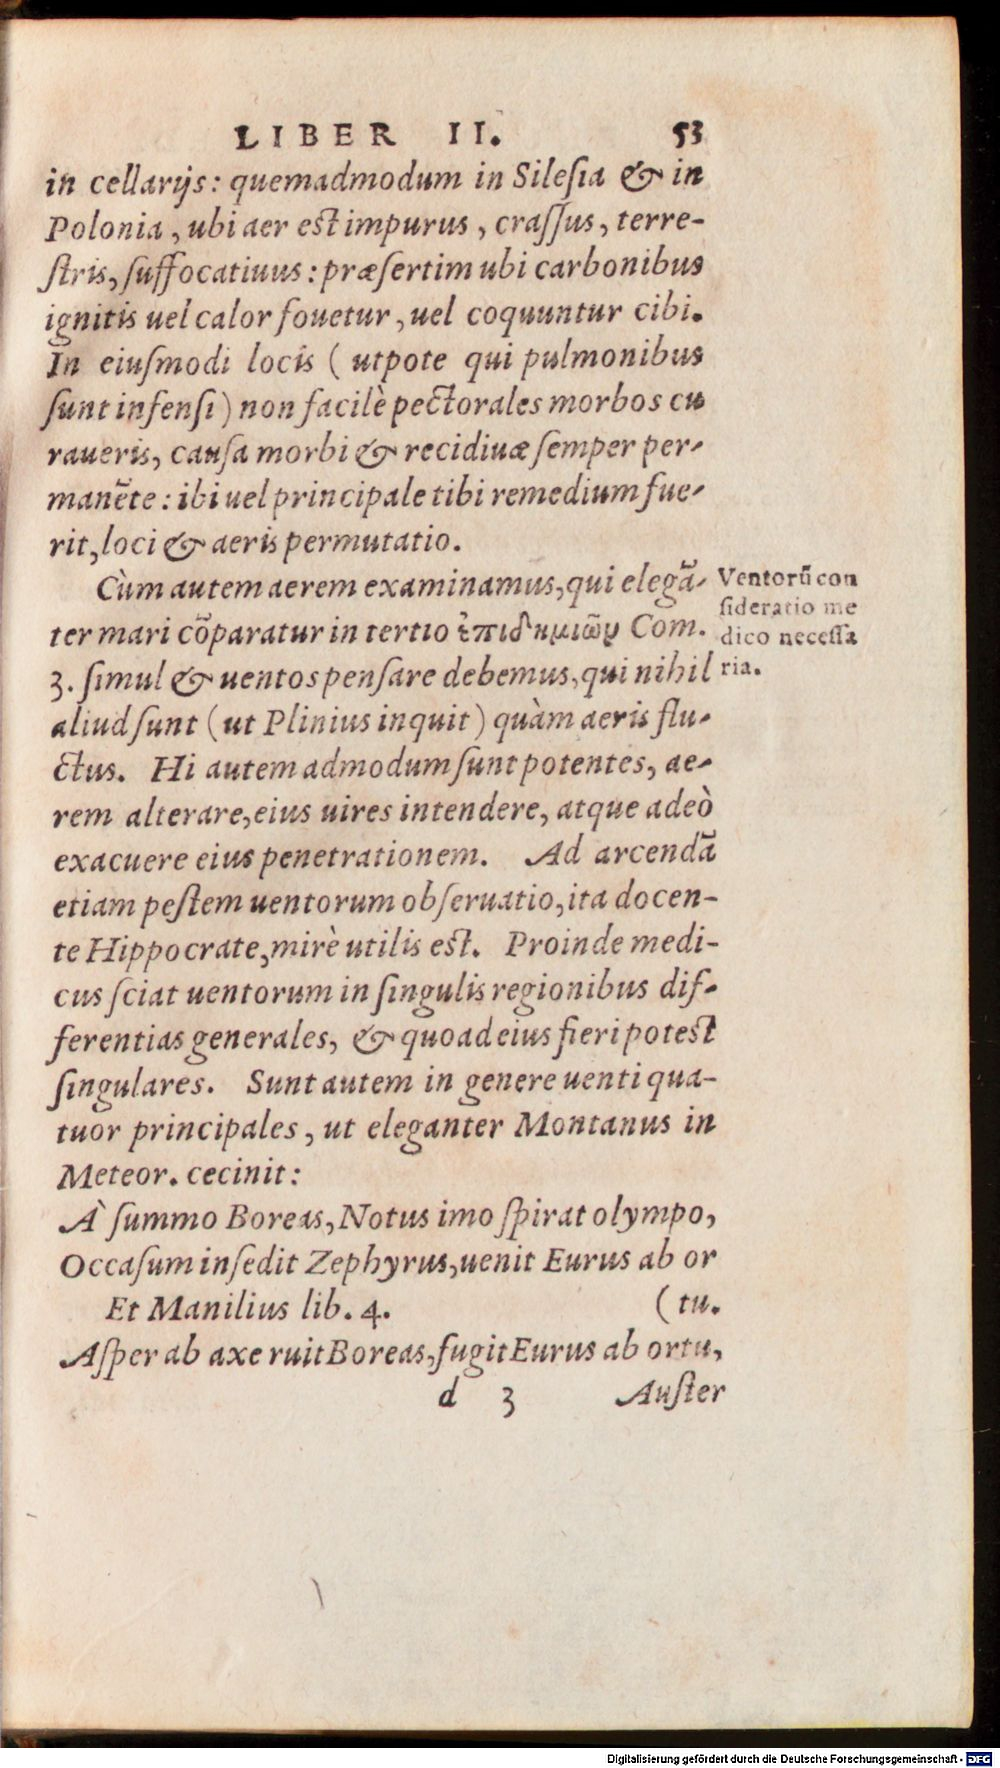 LIBER II. 53
in cellarijs: quemadmodum in Silesia & in
Polonia, ubi aer est impurus, crassus, terre-
stris, suffocatiuus: præsertim ubi carbonibus
ignitis uel calor fouetur, uel coquuntur cibi.
In eiusmodi locis ( utpote qui pulmonibus
sunt infensi) non facilè pectorales morbos cu
raueris, causa morbi & recidiuæ semper per-
manẽte: ibi uel principale tibi remedium fue-
rit, loci & aeris permutatio.
Cùm autem aerem examinamus, qui elegã-
ter mari cõparatur in tertio ἐπιδημιῶν Com.
3. simul & uentos pensare debemus, qui nihil
aliud sunt (ut Plinius inquit) quàm aeris flu-
ctus. Hi autem admodum sunt potentes, ae-
rem alterare, eius uires intendere, atque adeò
exacuere eius penetrationem. Ad arcendã
etiam pestem uentorum obseruatio, ita docen-
te Hippocrate, mirè utilis est. Proinde medi-
cus sciat uentorum in singulis regionibus dif-
ferentias generales, & quoad eius fieri potest
singulares. Sunt autem in genere uenti qua-
tuor principales, ut eleganter Montanus in
Meteor. cecinit:
À summo Boreas, Notus imo spirat olympo,
Occasum insedit Zephyrus, uenit Eurus ab or
Et Manilius lib. 4. (tu.
Asper ab axe ruit Boreas, fugit Eurus ab ortu,
d 3 Auster
Ventorũ con
sideratio me
dico necessa
ria.
Digitalisierung gefördert durch die Deutsche Forschungsgemeinschaft - DFG